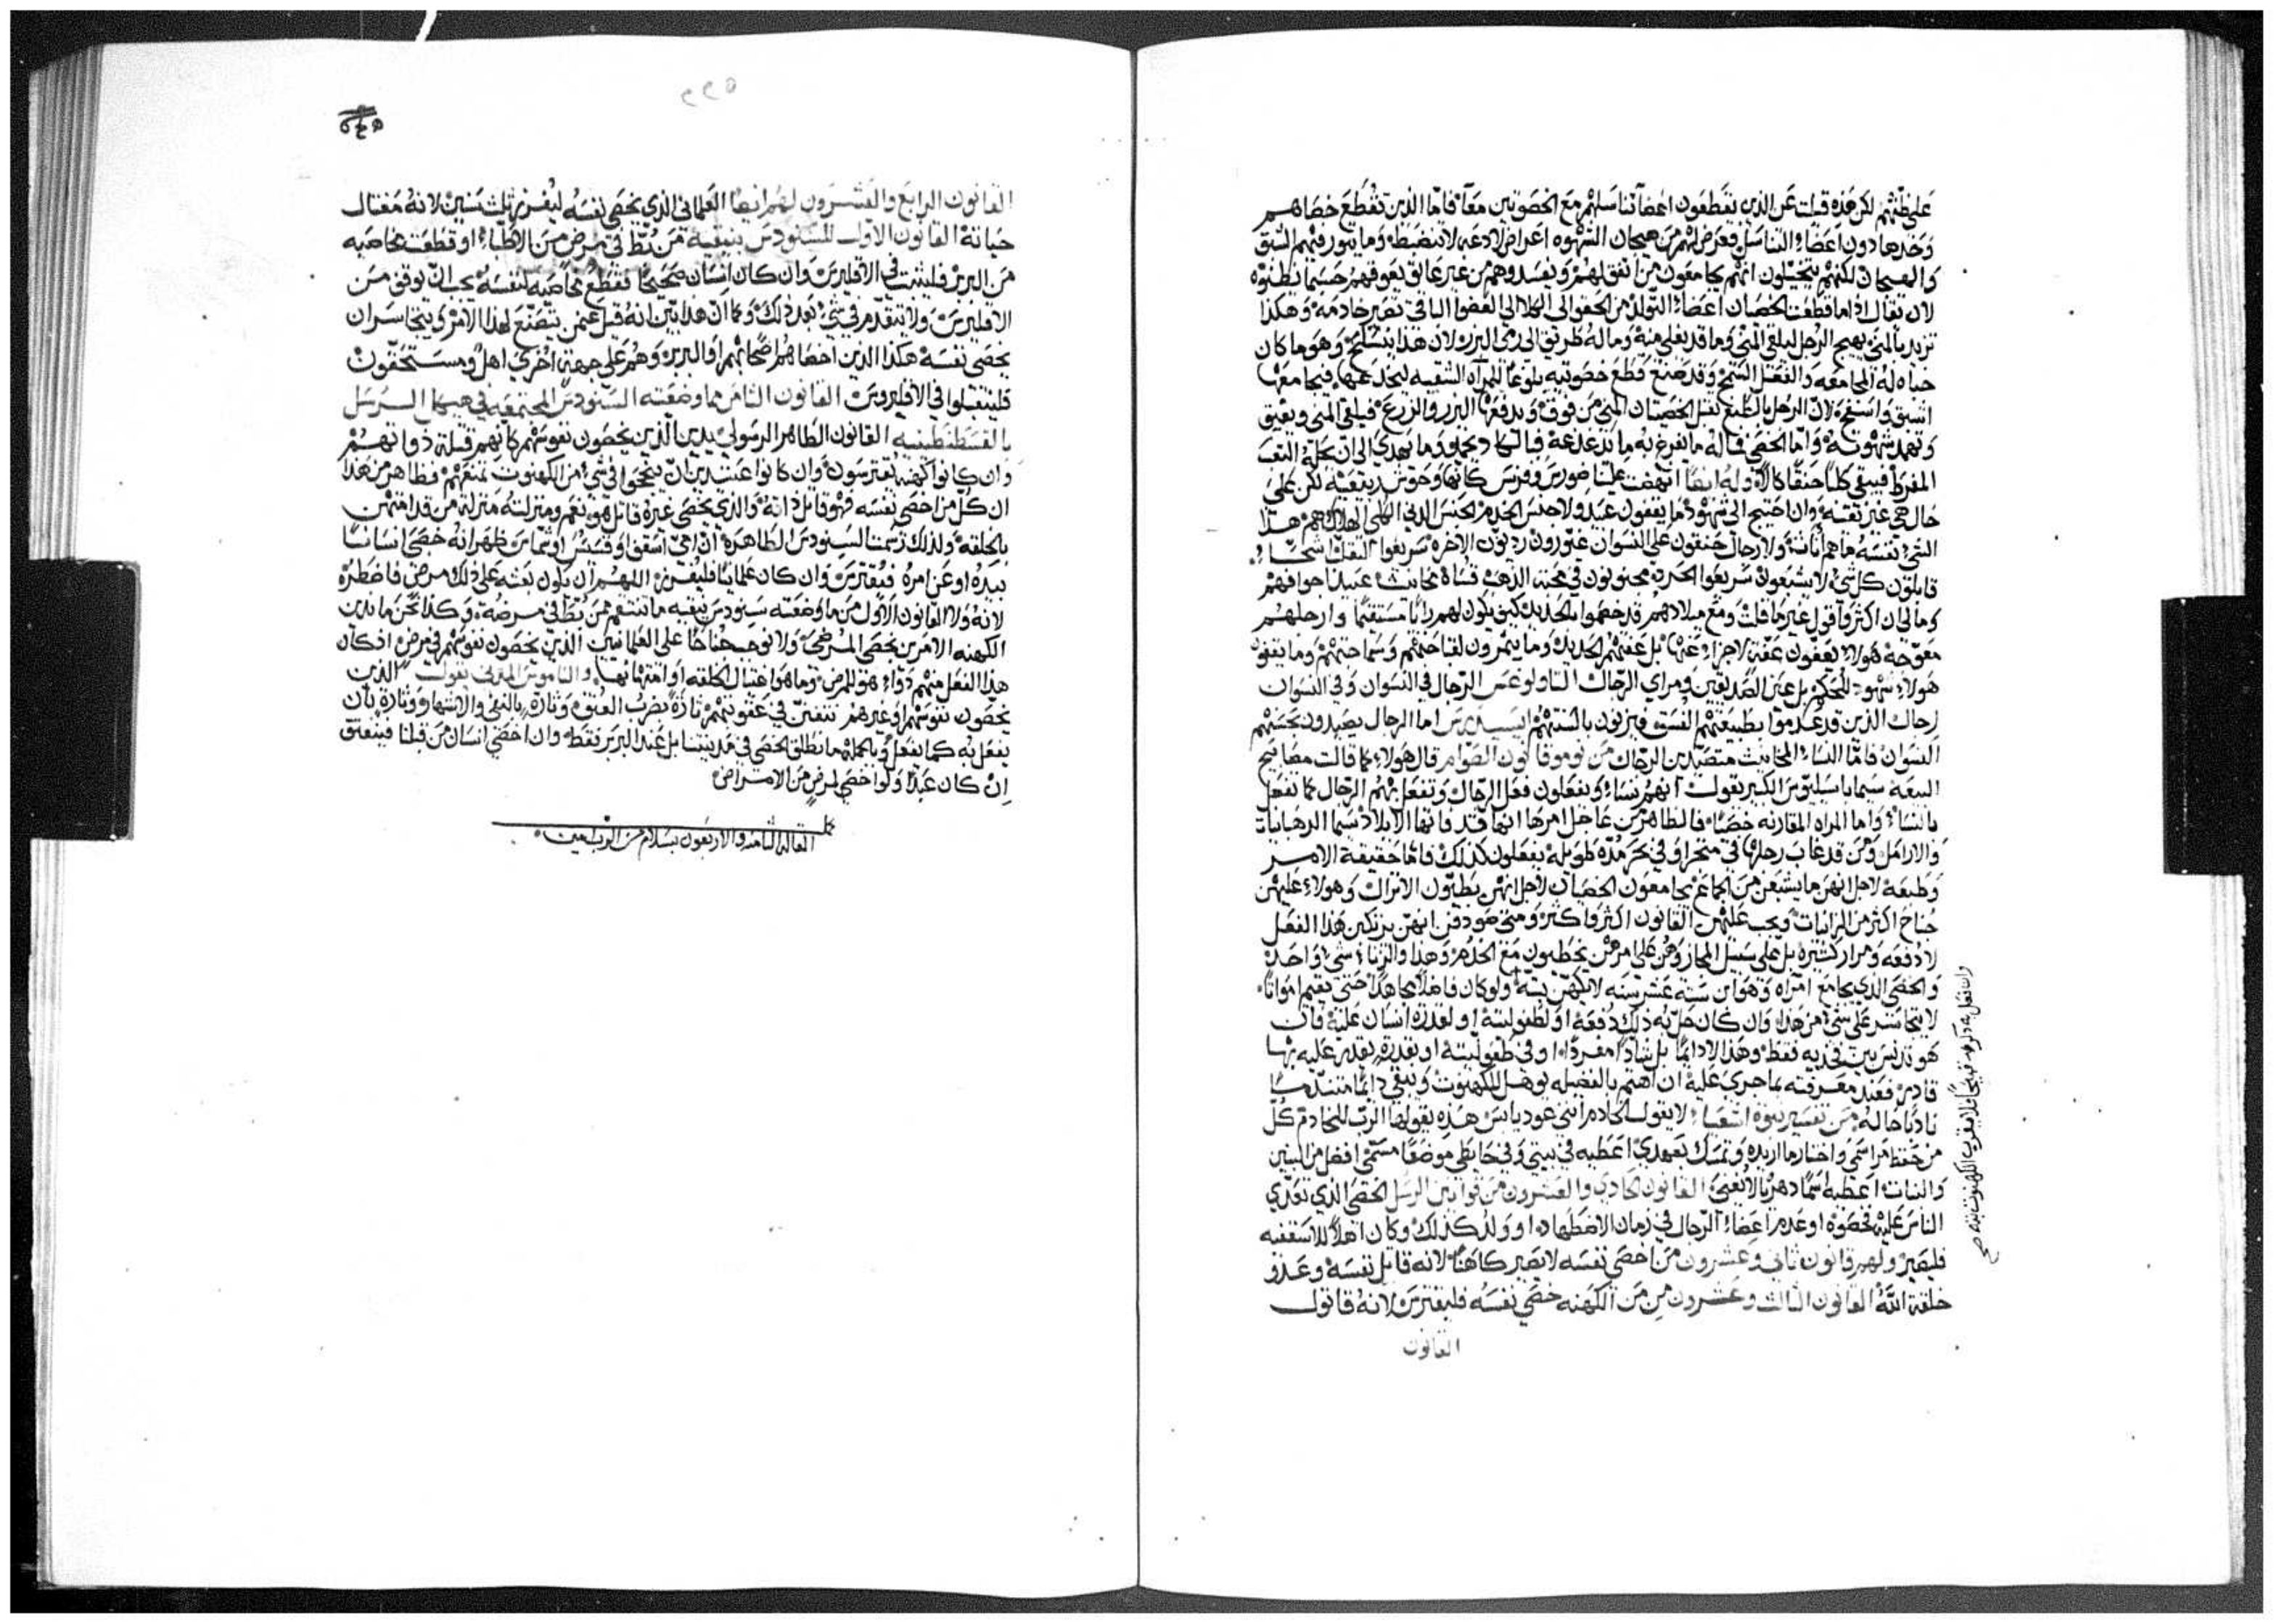 على ظنهم لكن هذه قيلت عن الذين يقطعون اعضآ تناسلهم مع الخصوتين معاً فاما الذين تقطع خصاهم
وحدها دون اعضاء التناسل فعرض لهم من هيجان الشهوه اعراض لادعه لا تنضبط وما يثور فيهم الشبق
والهيجان لكنهم يتخيلون انهم يجامعون من اتفق لهم ويفسدوهم من غير عايق يعوقهم حسبما يظنوه
لان يقال اذا ما قطعت الخصيان اعضاء التوليد من الحقو الى الكلا الى العضو الباقي تصير خادمه وهكذا
تزيد بالمني يهيج الرجل ليلقي المني وما قد يغلي منه وماله طريق الى رمي البزر لان هذا ينسلخ وهو ما كان
حباه له المجامعه والفعل السمج وقد صنع قطع خصوتيه بلوغاً للمرآه الشقيه ليخلد عمها فيجامعها
لان الرجل بالطبع تقبل الخصيتان المني من فوق ويدفعها البزر والزرع فيلقي المني ويفيق
وتهمد شهوته واما الخصي فماله ما يفرغ به ما تدغدغه
المفرط فيبقي كلباً حنقاً كالاً وله ايضاً انهضت علينا ضورس وفرس كانها وحوش برتيقنه لكن علي
حال هي غير نقيه وان احتيج الى شهود ما يقفون عبيد ولا جنس الخدم الجنس الدني الكلي الهلاك هم هذا
الشي نفسه ما هم اناث ولا رجال حنقون علي النسوان غيورون رديون الاخره سريعوا التقلب اشحاء
قابلون كل شي لا يشبعون سريعوا الحرد مجنونون في محبه الذهب قساه مخانيث عبيد اجوافهم
وما لي ان اكثر واقول غير ما قلت ومع ميلادهم قد حكموا بالحديد كيف يكون لهم رأياً مستقيماً وارجلهم
معوجه هولاء يعفون عفة لا جزاء عنها بل عفتهم الحديد وما يثمرون لقباحتهم وسماجتهم وما يقفون
هولاء شهود للحكم بل عن الصديقين ومراي الرجال
رجال الذين قد عدموا بطبيعتهم الفسق ويزنون بالسنتهم اما الرجال يصيدون بحسنهم
النسوان فاما النساء المخانيث متصيدين الرجال من نوموقانون الصوام قال هولاء كما قالت مصابيح
البيعه سيما باسيليوس الكبير يقولون انهم نساء ويفعلون فعل الرجال وتفعل بهم الرجال كما تفعل
بالنساء واما المراه المقارنه خصياً فالظاهر من عاجل امرها انها قد فاتها الايلاد سيما الرهبانيات
والارامل ومن قد غاب رجلها في متجر او في بحر مده طويله يفعلون كذلك فاما حقيقة الامر
وطبعه لاجل انهن ما يشبعن من الجماع يجامعون الخصيان لاجل انهن يبطيون الانزال وهولاء عليهن
جناح اكثر من الزانيات ويجب عليهن القانون اكثر واكثر ومتي صودفن انهن يرتكبن هذا الفعل
لا دفعه ومرار كثيره بل علي سبيل المجاز وهن علي امرهن يخطيون مع الخدم وهذا والزنا شي واحد
والخصي الذي يجامع امراه وهو ابن ستة عشر سنه لا يكهن بته ولو كان فاضلاً مجاهداً حتى يقيم امواتاً
لا يتجاسر علي شي من هذا وان كان حل به ذلك دفعه او لطفوليته او لغدره انسان عليه فان
هو تدنس بين فخديه فقط وهذا لا دايماً بل شاذاً مفرداً او في طفوليته او بغدره يغدر عليه بها
قادر فعند معرفته بما جري عليه ان اهتم بالفضيله يوهل للكهنوت ويبقي دايماً متندماً
نادباً حاله من تفسير نبوة اشعيا لا يقول الخادم انني عود يابس هذه يقولها الرب للخادم كل
من حفظ مراسمي واختار ما اريده وتمسك بعهدي اعطيه في بيتي وفي حايطي موضعاً مسمى افضل من البنين
والبنات اعطيه اسماً دهرياً لا يفنى القانون الحادي والعشرون من قوانين الرسل الخصي الذي تعدي
الناس عليه فخصوه او عدم اعضاء الرجال في زمان الاضطهاد او ولد كذلك وكان اهلاً للاسقفيه
فليصير ولهم قانون ثاني وعشرون من اخصى نفسه لا يصير كاهناً لانه قاتل نفسه وعدو
خلقة الله القانون الثالث وعشرون من من الكهنه خصي نفسه فليفترس لانه قاتول
القانون
القانون الرابع والعشرون لهم ايضاً العلماني الذي يخصي نفسه ليفرز ثلث سنين لانه مغتال
حياته القانون الاول للسنودس بنيقية من بُطّ في مرض من الاطباء او قطعت مخاصيه
من البربر فليثبت في الاقليرس وان كان انسان صحيحاً فقطع مخاصيه لنفسه يجب ان يوقف من
الاقليرس ولا يتقدم في شي بعد ذلك وكما ان هذا بين انه قيل عمن يتصنع لهذا الامر ويتجاسر ان
يخصي نفسه هكذا الذين اخصاهم اصحابهم او البربر وهم علي جهة اخري اهل ومستحقون
فليقبلوا في الاقليروس القانون الثامن مما وضعته السنودس المجتمعه في هيكل الرسل
بالقسطنطينيه القانون الطاهر الرسولي يدين الذين يخصون نفوسهم كانهم قتلة ذواتهم
وان كانوا كهنه يفترسون وان كانوا عتيدين ان ينجحوا في شي من الكهنوت تمنعهم فظاهر من هذا
ان كل من اخصى نفسه فهو قاتل ذاته والذي يخصي غيره قاتل هو نعم ومنزلته منزلة من قد امتهن
بالخلقه ولذلك رسمت السنودس الطاهره ان اي اسقف او قسيس او شماس ظهر انه خصى انساناً
بيده او عن امره فيفترس وان كان علمانياً فليفرز اللهم ان يكون بعثه على ذلك مرض فاضطره
لانه ولا القانون الاول من ما وضعته سنودس نيقيه ما تنتقم ممن بُطّ في مرضه وكذا نحن ما ندين
الكهنه الامرين بخصي المرضي ولا نوجب جناحاً على العلمانيين الذين يخصون نفوسهم في مرض اذ كان
هذا الفعل منهم دواء هو للمرض وما هو اغتيال الخلقه او امتهانها والناموس المدني يقول الذين
يخصون نفوسهم او غيرهم تتفنن في عقوبتهم تارة بضرب العنق وتارة بالنفي والاشهار وتارة بان
يفعل به كما يفعل وبالجمله ما نطلق الخصي في مدينتنا بل عند البربر فقط وان اخصي انسان من قبلنا فيعتق
ان كان عبداً ولو اخصي لمرض من الامراض
كمل
المقاله الثامنه والاربعون بسلام من الرب امين